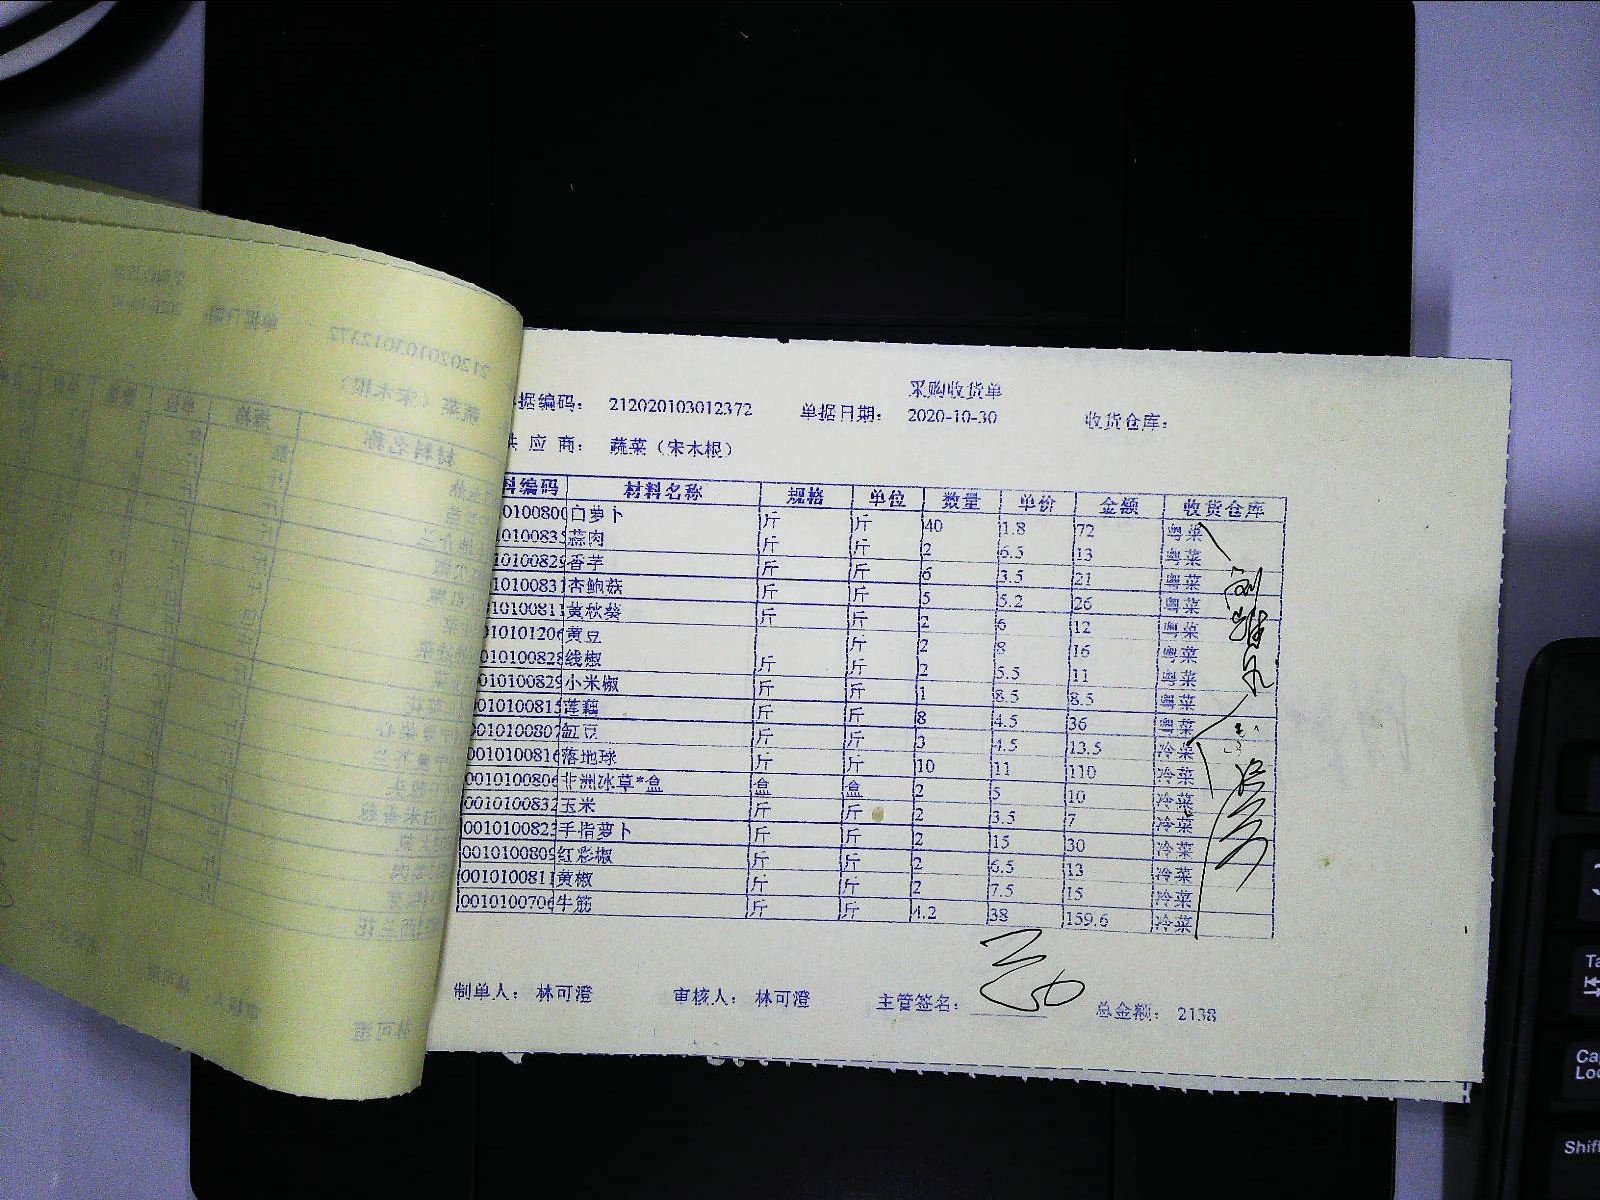 采购收货单
据编码： 212020103012372 单据日期： 2020-10-30 收货仓库：
供 应 商： 蔬菜（宋木根）
料编码 材料名称 规格 单位 数量 单价 金额 收货仓库
0100800 白萝卜 斤 斤 40 1.8 72 粤菜
010083 蒜肉 斤 斤 2 6.5 13 粤菜
10100829 香芋 斤 斤 6 3.5 21 粤菜
10100831 杏鲍菇 斤 斤 5 5.2 26 粤菜
10100811 黄秋葵 斤 斤 2 6 12 粤菜
01010120 黄豆 斤 2 8 16 粤菜
01010082 线椒 斤 斤 2 5.5 11 粤菜
010100829 小米椒 斤 斤 1 8.5 8.5 粤菜
01010081 莲藕 斤 斤 8 4.5 36 粤菜
01010080 豇豆 斤 斤 3 4.5 13.5 冷菜
001010081 落地球 斤 斤 10 11 110 冷菜
001010080 非洲冰草*盒 盒 盒 2 5 10 冷菜
0010100832 玉米 斤 斤 2 3.5 7 冷菜
001010082 手指萝卜 斤 斤 2 15 30 冷菜
001010080 红彩椒 斤 斤 2 6.5 13 冷菜
001010081 黄椒 斤 斤 2 7.5 15 冷菜
001010070 牛筋 斤 斤 4.2 38 159.6 冷菜
制单人： 林可澄 审核人： 林可澄 主管签名： 总金额： 2138